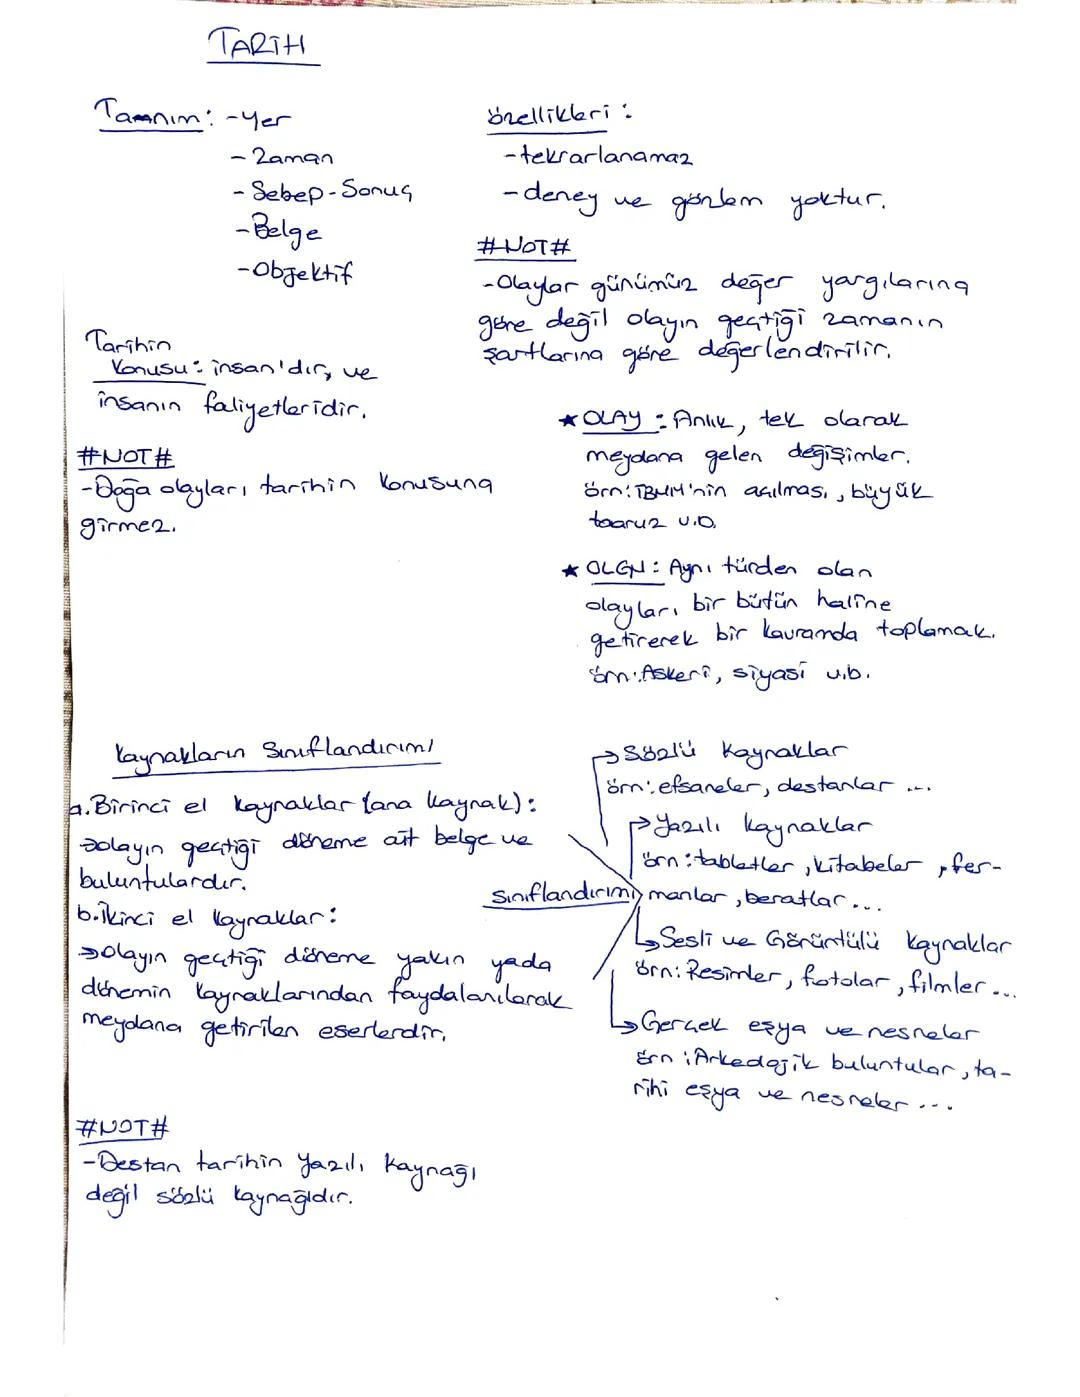 TARİH
Tanım: -Yer
-Zaman
-Sebep-Sonuç
-Belge
-Objektif
Tarihin
Konusu: insan'dır, ve
insanın faliyetleridir.
#NOT#
-Doğa olayları tarihin konusuna
girmez.
özellikleri:
-tekrarlanamaz
-deney ve gözlem yoktur.
#NOT#
-Olaylar günümüz değer yargılarına
göre değil olayın geçtiği zamanın
şartlarına göre değerlendirilir.
★ OLAY: Anlık, tek olarak
meydana gelen değişimler.
örn: TBMM'nin açılması, büyük
taaruz v.b.
★ OLGU: Aynı türden olan
olayları bir bütün haline
getirerek bir kavramda toplamak.
örn: Askeri, siyasi v.b.
Kaynakların Sınıflandırımı
a. Birinci el kaynaklar (ana kaynak):
→olayın geçtiği döneme ait belge ve
buluntulardır.
b. İkinci el kaynaklar:
→olayın geçtiği döneme yakın yada
dönemin kaynaklarından faydalanılarak
meydana getirilen eserlerdir.
#NOT#
-Destan tarihin yazılı kaynağı
değil sözlü kaynağıdır.
sınıflandırımı
→Sözlü kaynaklar
örn: efsaneler, destanlar ...
→Yazılı kaynaklar
örn: tabletler, kitabeler, fer-
manlar, beratlar...
→Sesli ve Görüntülü kaynaklar
örn: Resimler, fotolar, filmler...
→Gerçek eşya ve nesneler
örn: Arkedojik buluntular, ta-
rihi eşya ve nesneler ...